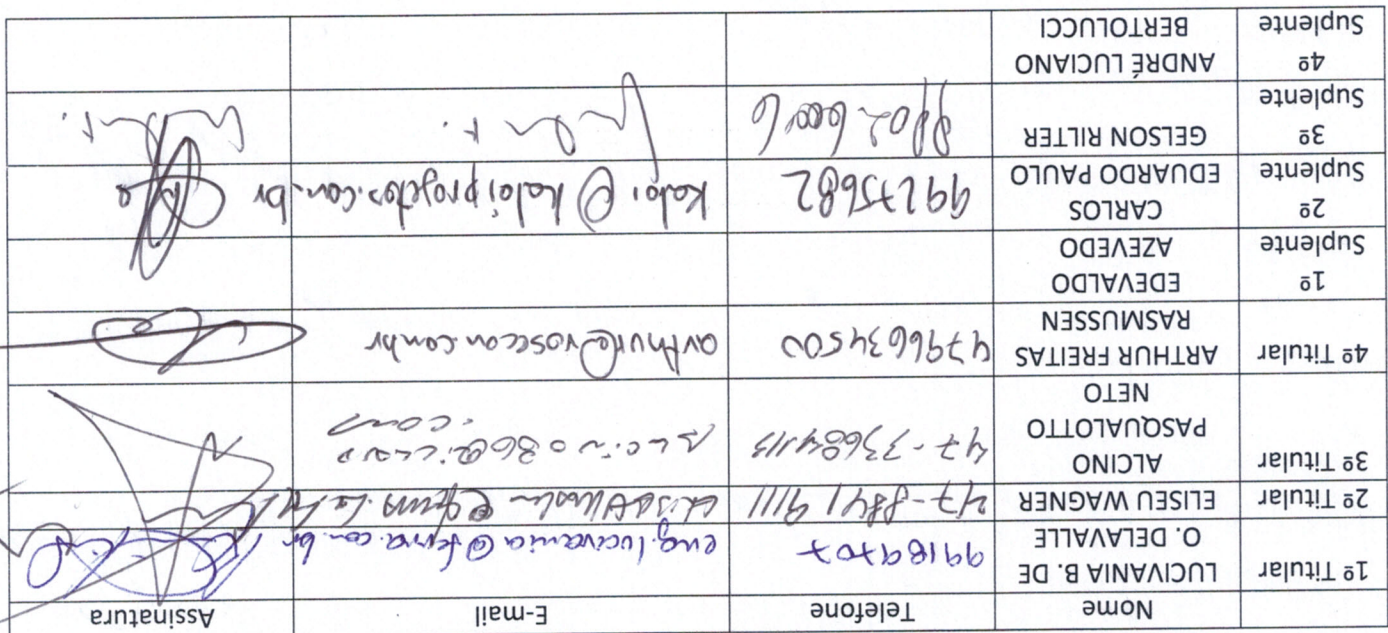 Nome Telefone E-mail Assinatura
1º Titular LUCIVANIA B. DE O. DELAVALLE 99189707 eng.lucivania@terra.com.br
2º Titular ELISEU WAGNER 47-8841 9111
3º Titular ALCINO PASQUALOTTO NETO 47-33684113
.com
4º Titular ARTHUR FREITAS RASMUSSEN 4796634500 arthur@rosecon.com.br
1º Suplente EDEVALDO AZEVEDO
2º Suplente CARLOS EDUARDO PAULO 99275682 Kaloi@kaloiprojetos.com.br
3º Suplente GELSON RILTER
4º Suplente ANDRÉ LUCIANO BERTOLUCCI